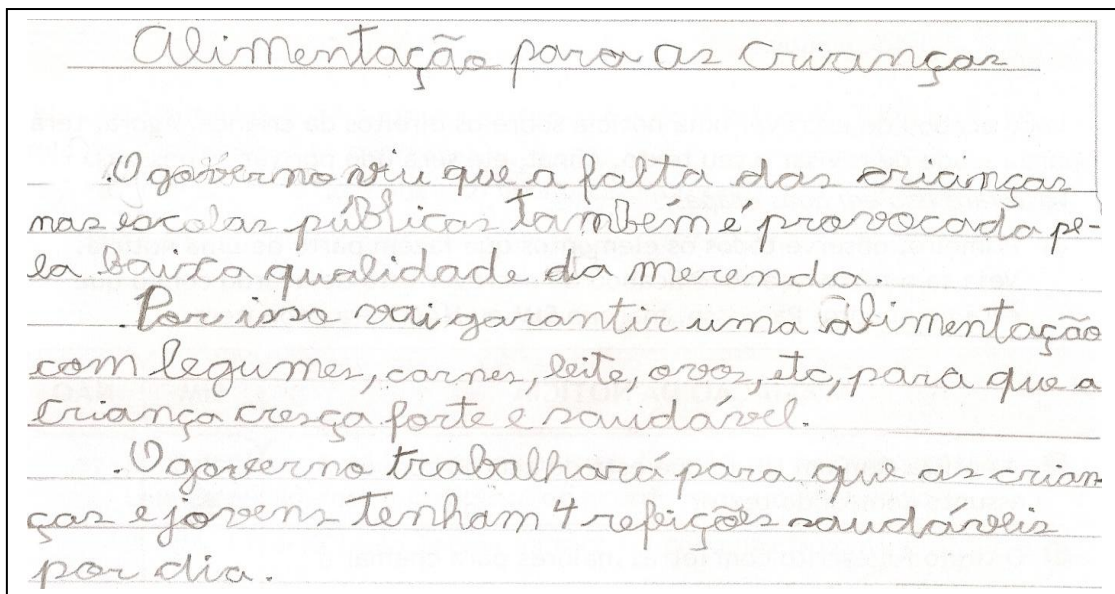 Alimentação para as crianças
O governo viu que a falta das crianças
nas escolas públicas também é provocada pe-
la baixa qualidade da merenda.
Por isso vai garantir uma alimentação
com legumes, carnes, leite, ovos, etc, para que a
criança cresça forte e saudável.
O governo trabalhará para que as crian-
ças e jovens tenham 4 refeições saudáveis
por dia.